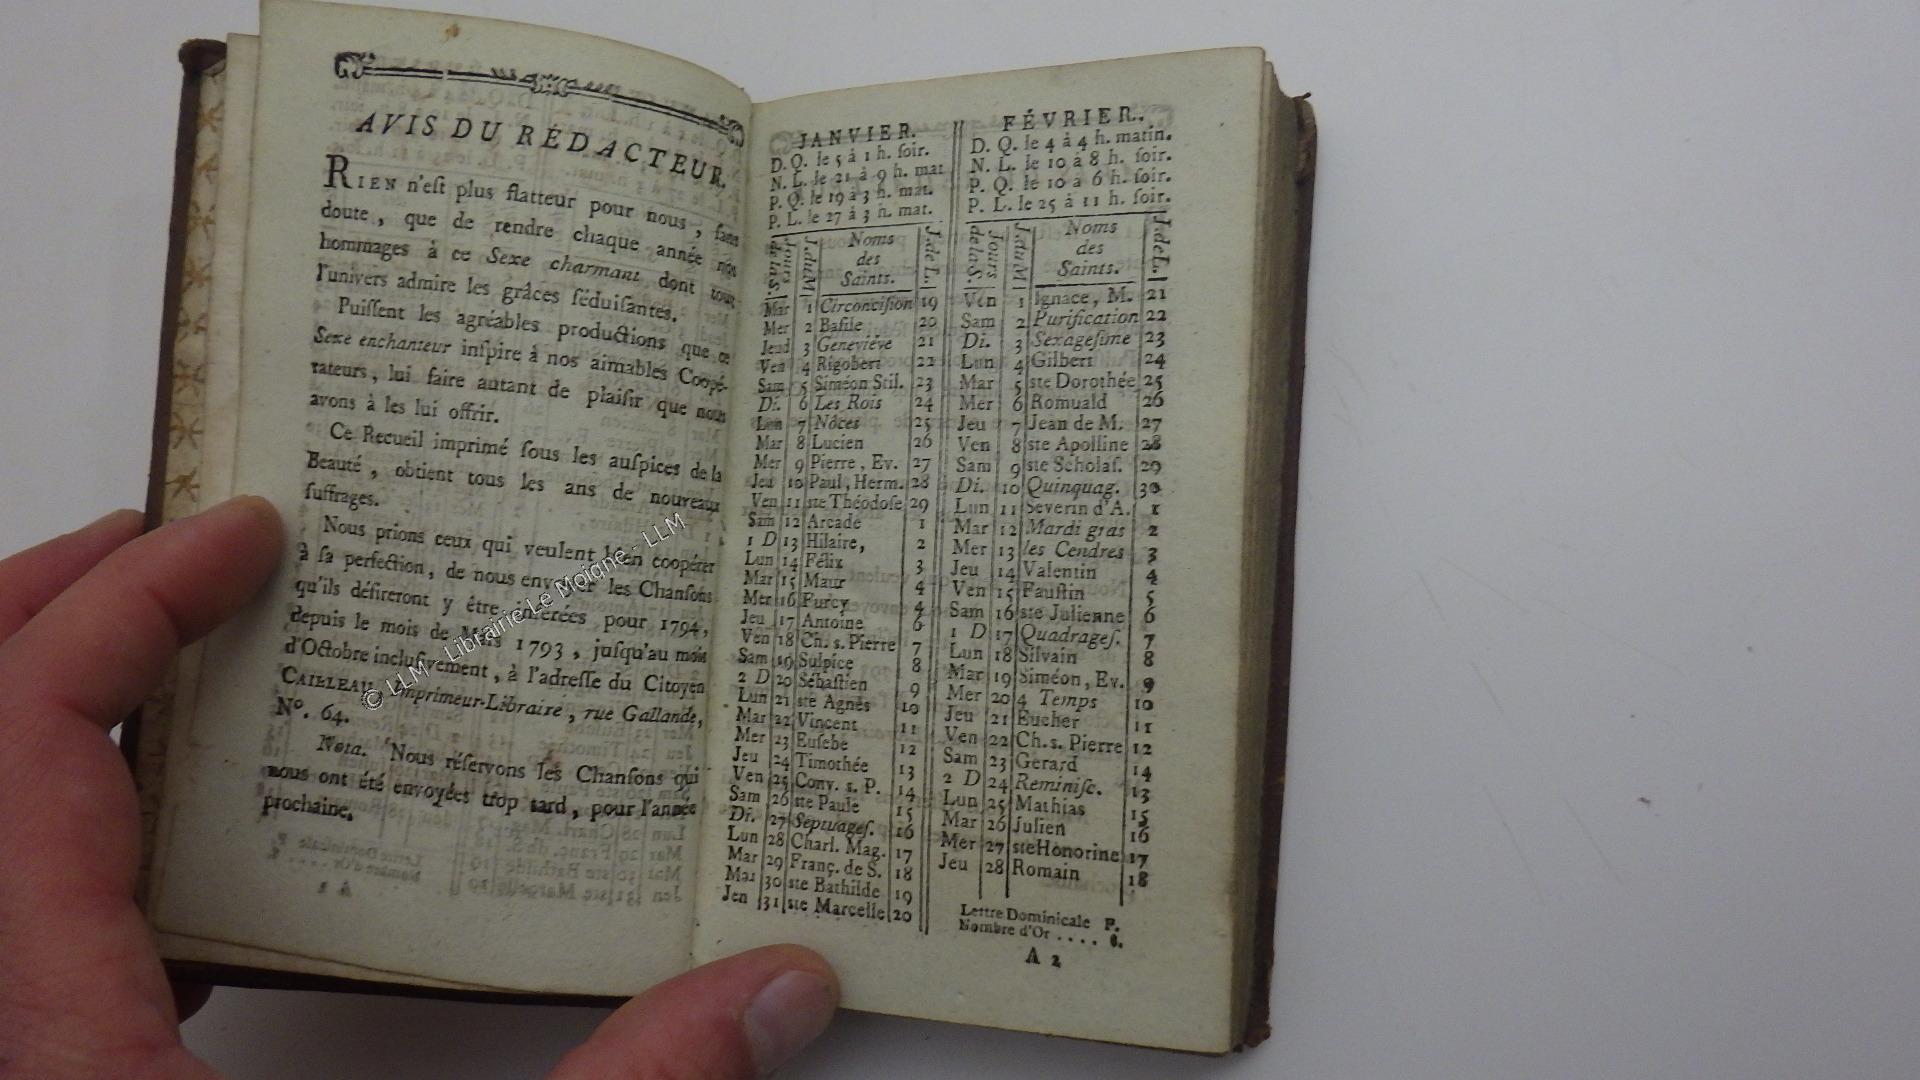 AVIS DU RÉDACTEUR.
RIEN n'eſt plus flatteur pour nous, ſans
doute, que de rendre chaque année nos
hommages à ce Sexe charmant dont tout
l'univers admire les grâces ſéduiſantes.
Puiſſent les agréables productions que ce
Sexe enchanteur inſpire à nos aimables Coopé-
rateurs, lui faire autant de plaiſir que nous
avons à les lui offrir.
Ce Recueil imprimé ſous les auſpices de la
Beauté, obtient tous les ans de nouveaux
ſuffrages.
Nous prions ceux qui veulent bien coopérer
à ſa perfection, de nous envoyer les Chanſons
qu'ils déſireront y être inſérées pour 1794,
depuis le mois de Mars 1793, juſqu'au mois
d'Octobre incluſivement, à l'adreſſe du Citoyen
CAILLEAU, Imprimeur-Libraire, rue Gallande,
Nº. 64.
Nota. Nous réſervons les Chanſons qui
nous ont été envoyées trop tard, pour l'année
prochaine.
© LLM - Librairie Le Moiane - LLM
JANVIER.
D. Q. le 5 à 1 h. ſoir.
N. L. le 21 à 9 h. mat
P. Q. le 19 à 3 h. mat.
P. L. le 27 à 3 h. mat.
Jours de la S. J. du M Noms des Saints. J. de L.
Mar 1 Circonciſion 19
Mer 2 Baſile 20
Jeud 3 Geneviève 21
Ven 4 Rigobert 22
Sam 5 Siméon Stil. 23
Di. 6 Les Rois 24
Lun 7 Nôces 25
Mar 8 Lucien 26
Mer 9 Pierre, Ev. 27
Jeu 10 Paul, Herm. 28
Ven 11 ste Théodoſe 29
Sam 12 Arcade 1
1 D 13 Hilaire, 2
Lun 14 Félix 3
Mar 15 Maur 4
Mer 16 Furcy 4
Jeu 17 Antoine 6
Ven 18 Ch. s. Pierre 7
Sam 19 Sulpice 8
2 D 20 Sébaſtien 9
Lun 21 ste Agnès 10
Mar 22 Vincent 11
Mer 23 Euſebe 12
Jeu 24 Timothée 13
Ven 25 Conv. s. P. 14
Sam 26 ste Paule 15
Di. 27 Septuageſ. 16
Lun 28 Charl. Mag. 17
Mar 29 Franç. de S. 18
Mar 30 ste Bathilde 19
Jen 31 ste Marcelle 20
FÉVRIER.
D. Q. le 4 à 4 h. matin.
N. L. le 10 à 8 h. ſoir.
P. Q. le 10 à 6 h. ſoir.
P. L. le 25 à 11 h. ſoir.
Jours de la S. J. du M Noms des Saints. J. de L.
Ven 1 Ignace, M. 21
Sam 2 Purification 22
Di. 3 Sexageſime 23
Lun 4 Gilbert 24
Mar 5 ste Dorothée 25
Mer 6 Romuald 26
Jeu 7 Jean de M. 27
Ven 8 ste Apolline 28
Sam 9 ste Scholaſ. 29
Di. 10 Quinquag. 30
Lun 11 Severin d'A. 1
Mar 12 Mardi gras 2
Mer 13 les Cendres 3
Jeu 14 Valentin 4
Ven 15 Fauſtin 5
Sam 16 ste Julienne 6
1 D 17 Quadrageſ. 7
Lun 18 Silvain 8
Mar 19 Siméon, Ev. 9
Mer 20 4 Temps 10
Jeu 21 Eucher 11
Ven 22 Ch. s. Pierre 12
Sam 23 Gerard 14
2 D 24 Reminiſc. 13
Lun 25 Mathias 15
Mar 26 Julien 16
Mer 27 ste Honorine 17
Jeu 28 Romain 18
Lettre Dominicale F.
Nombre d'Or ....
A 2